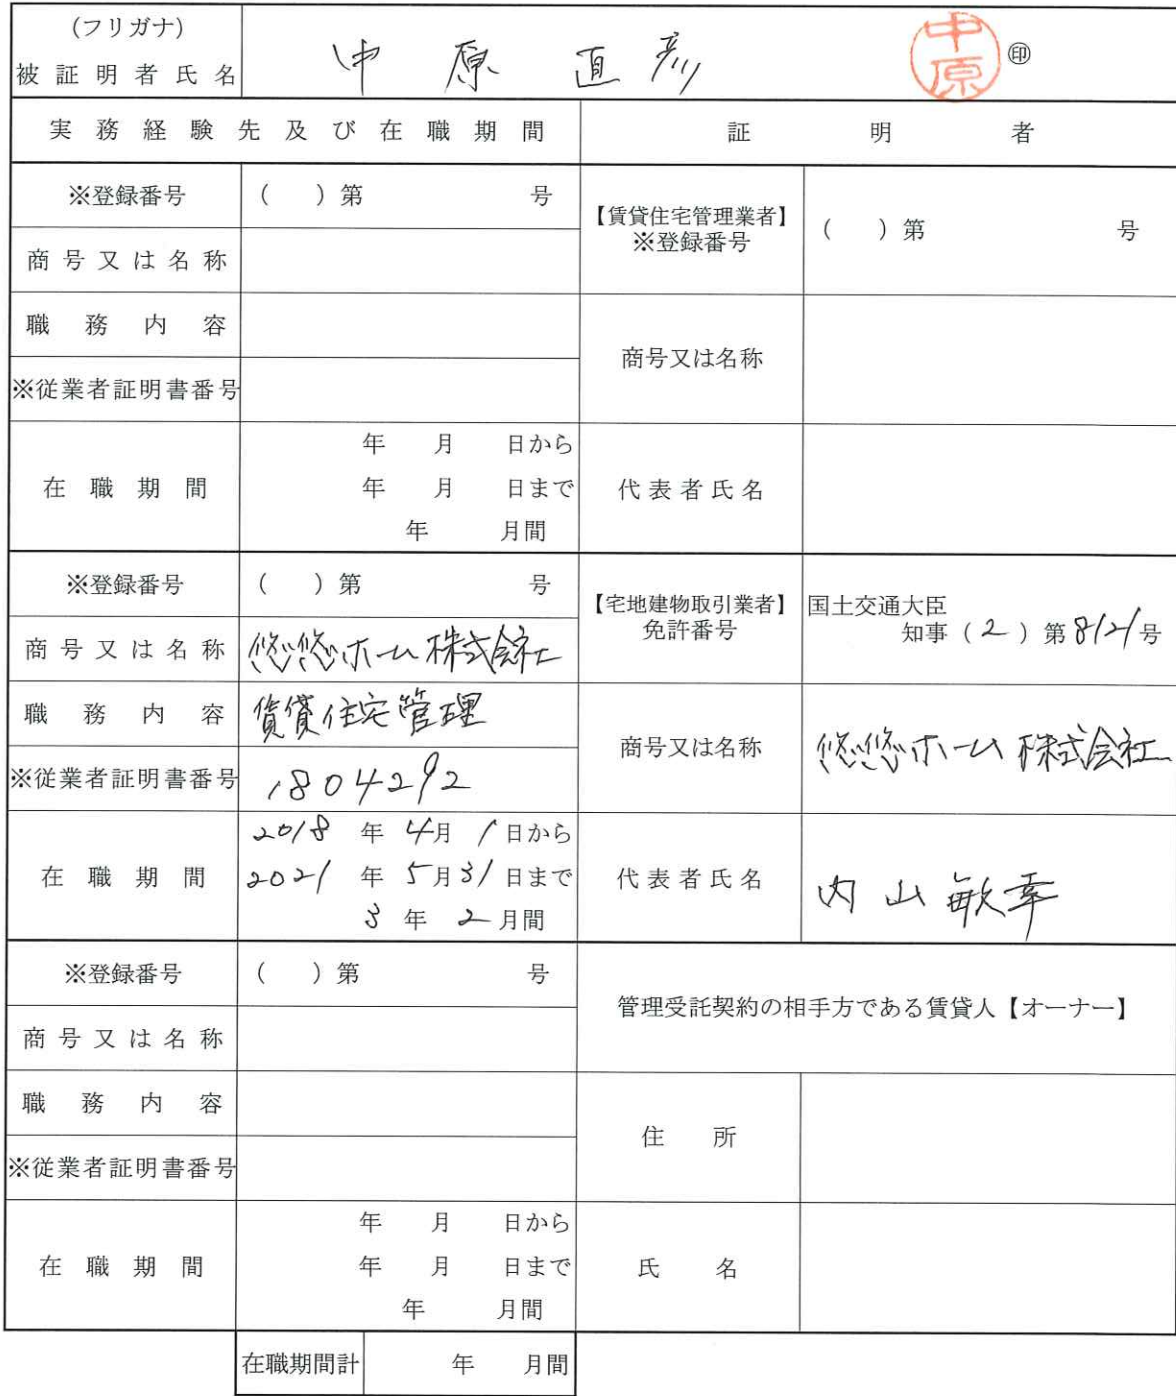 (フリガナ)
被証明者氏名 中原 直彦 中原 ㊞
実務経験先及び在職期間 証明者
※登録番号 ( )第 号
商号又は名称
職務内容
※従業者証明書番号
在職期間 年 月 日から
年 月 日まで
年 月間
【賃貸住宅管理業者】
※登録番号 ( )第 号
商号又は名称
代表者氏名
※登録番号 ( )第 号
商号又は名称 悠悠ホーム株式会社
職務内容 賃貸住宅管理
※従業者証明書番号 1804292
在職期間 2018 年 4月 1日から
2021 年 5月31日まで
3 年 2月間
【宅地建物取引業者】
免許番号
国土交通大臣
知事(2)第8121号
商号又は名称 悠悠ホーム株式会社
代表者氏名 内山敏幸
※登録番号 ( )第 号
商号又は名称
職務内容
※従業者証明書番号
在職期間 年 月 日から
年 月 日まで
年 月間
管理受託契約の相手方である賃貸人【オーナー】
住所
氏名
在職期間計 年 月間